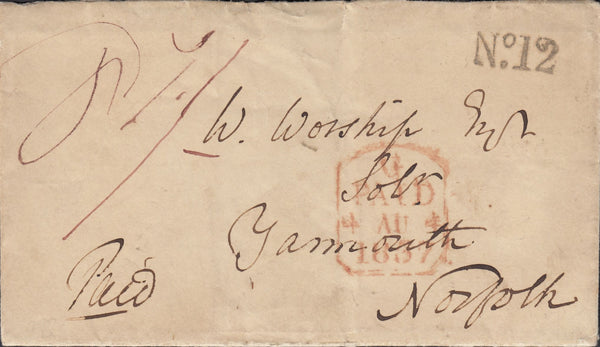 No. 12
W. Worship Esqr
Solr
Yarmouth
Norfolk
Paid
PAID
AU
1837